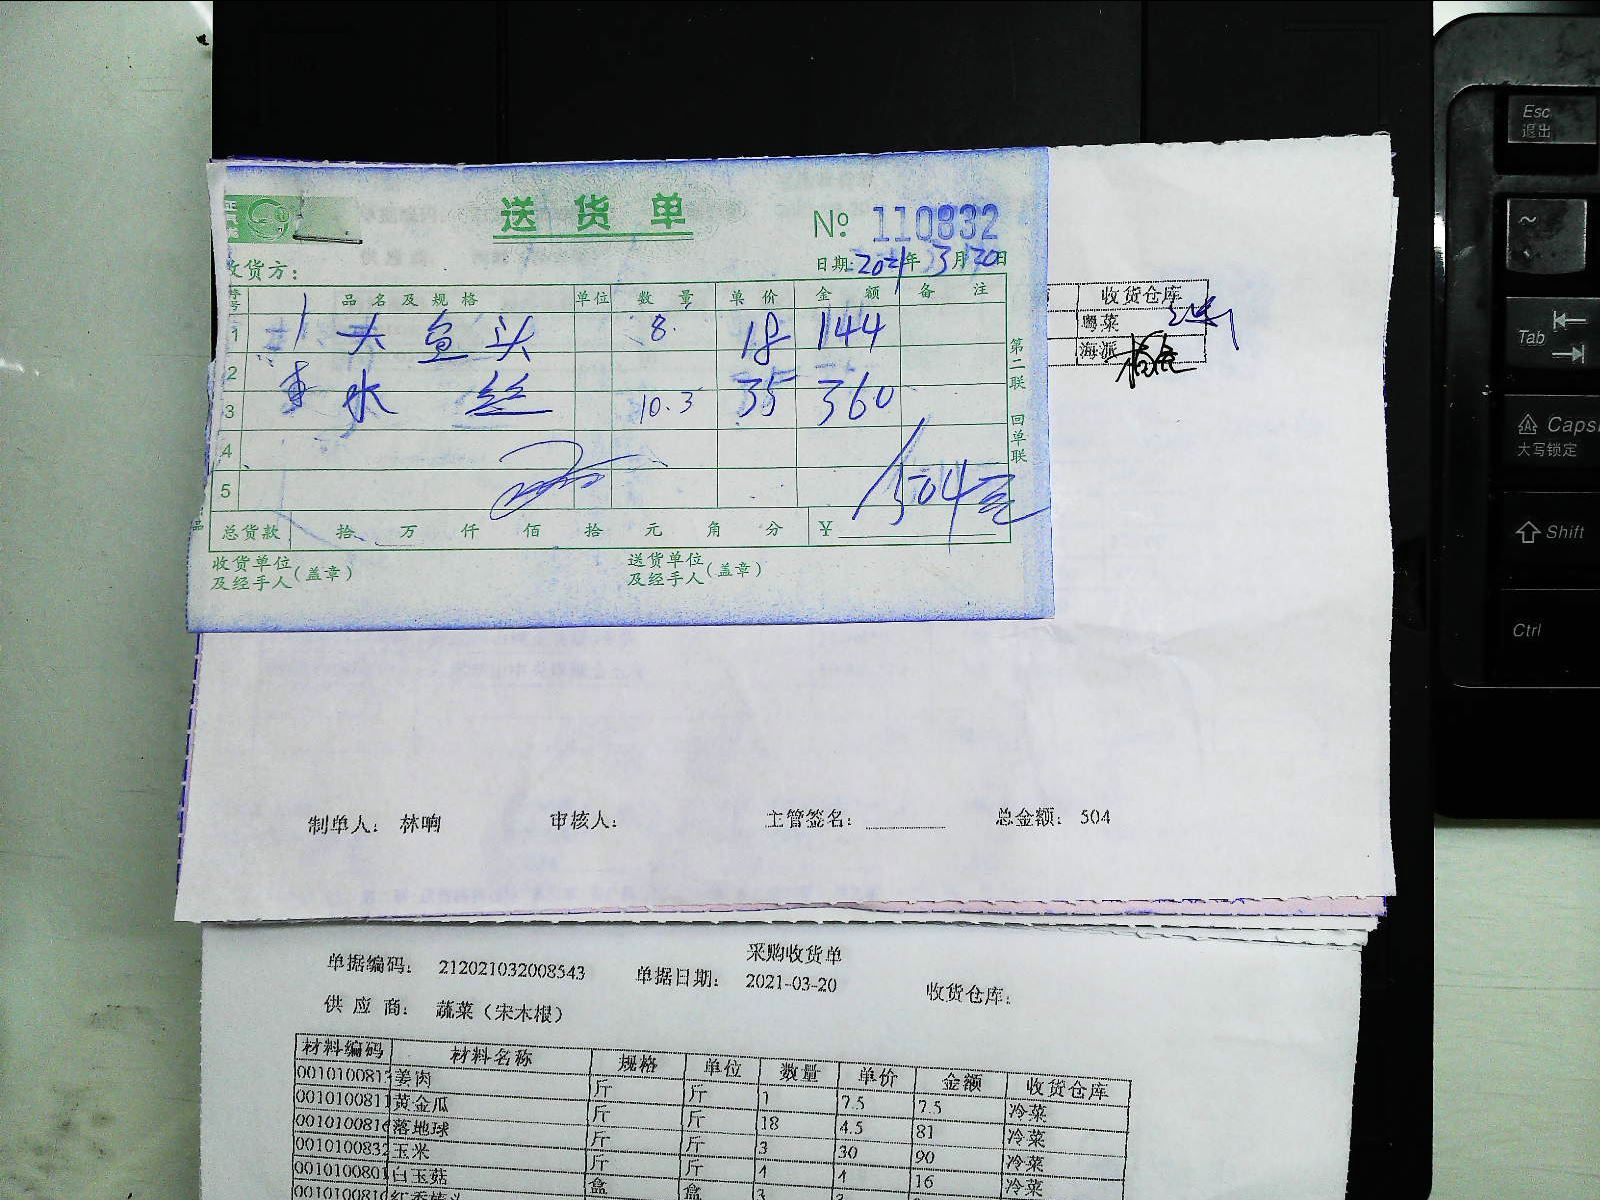 送货单
№ 110832
收货方：
日期：2021年3月20日
序号 品名及规格 单位 数量 单价 金额 备注
1 大鱼头 8. 18 144
2
3 水 丝 10.3 35 360
4
5 504元
总货款 拾 万 仟 佰 拾 元 角 分 ¥
收货单位及经手人（盖章） 送货单位及经手人（盖章）
第二联 回单联
收货仓库
粤菜
海派
制单人： 林响 审核人： 主管签名： 总金额： 504
采购收货单
单据编码： 212021032008543 单据日期： 2021-03-20 收货仓库：
供应商： 蔬菜（宋木根）
材料编码 材料名称 规格 单位 数量 单价 金额 收货仓库
001010081 姜肉 斤 斤 1 7.5 7.5 冷菜
001010081 黄金瓜 斤 斤 18 4.5 81 冷菜
001010081 落地球 斤 斤 3 30 90 冷菜
0010100832 玉米 斤 斤 4 4 16 冷菜
001010080 白玉菇 盒 盒
Esc
退出
~
Tab
Caps
大写锁定
Shift
Ctrl